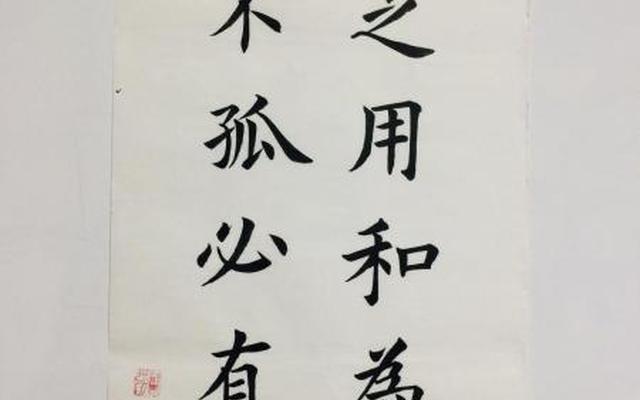 之用和為
不孤必有